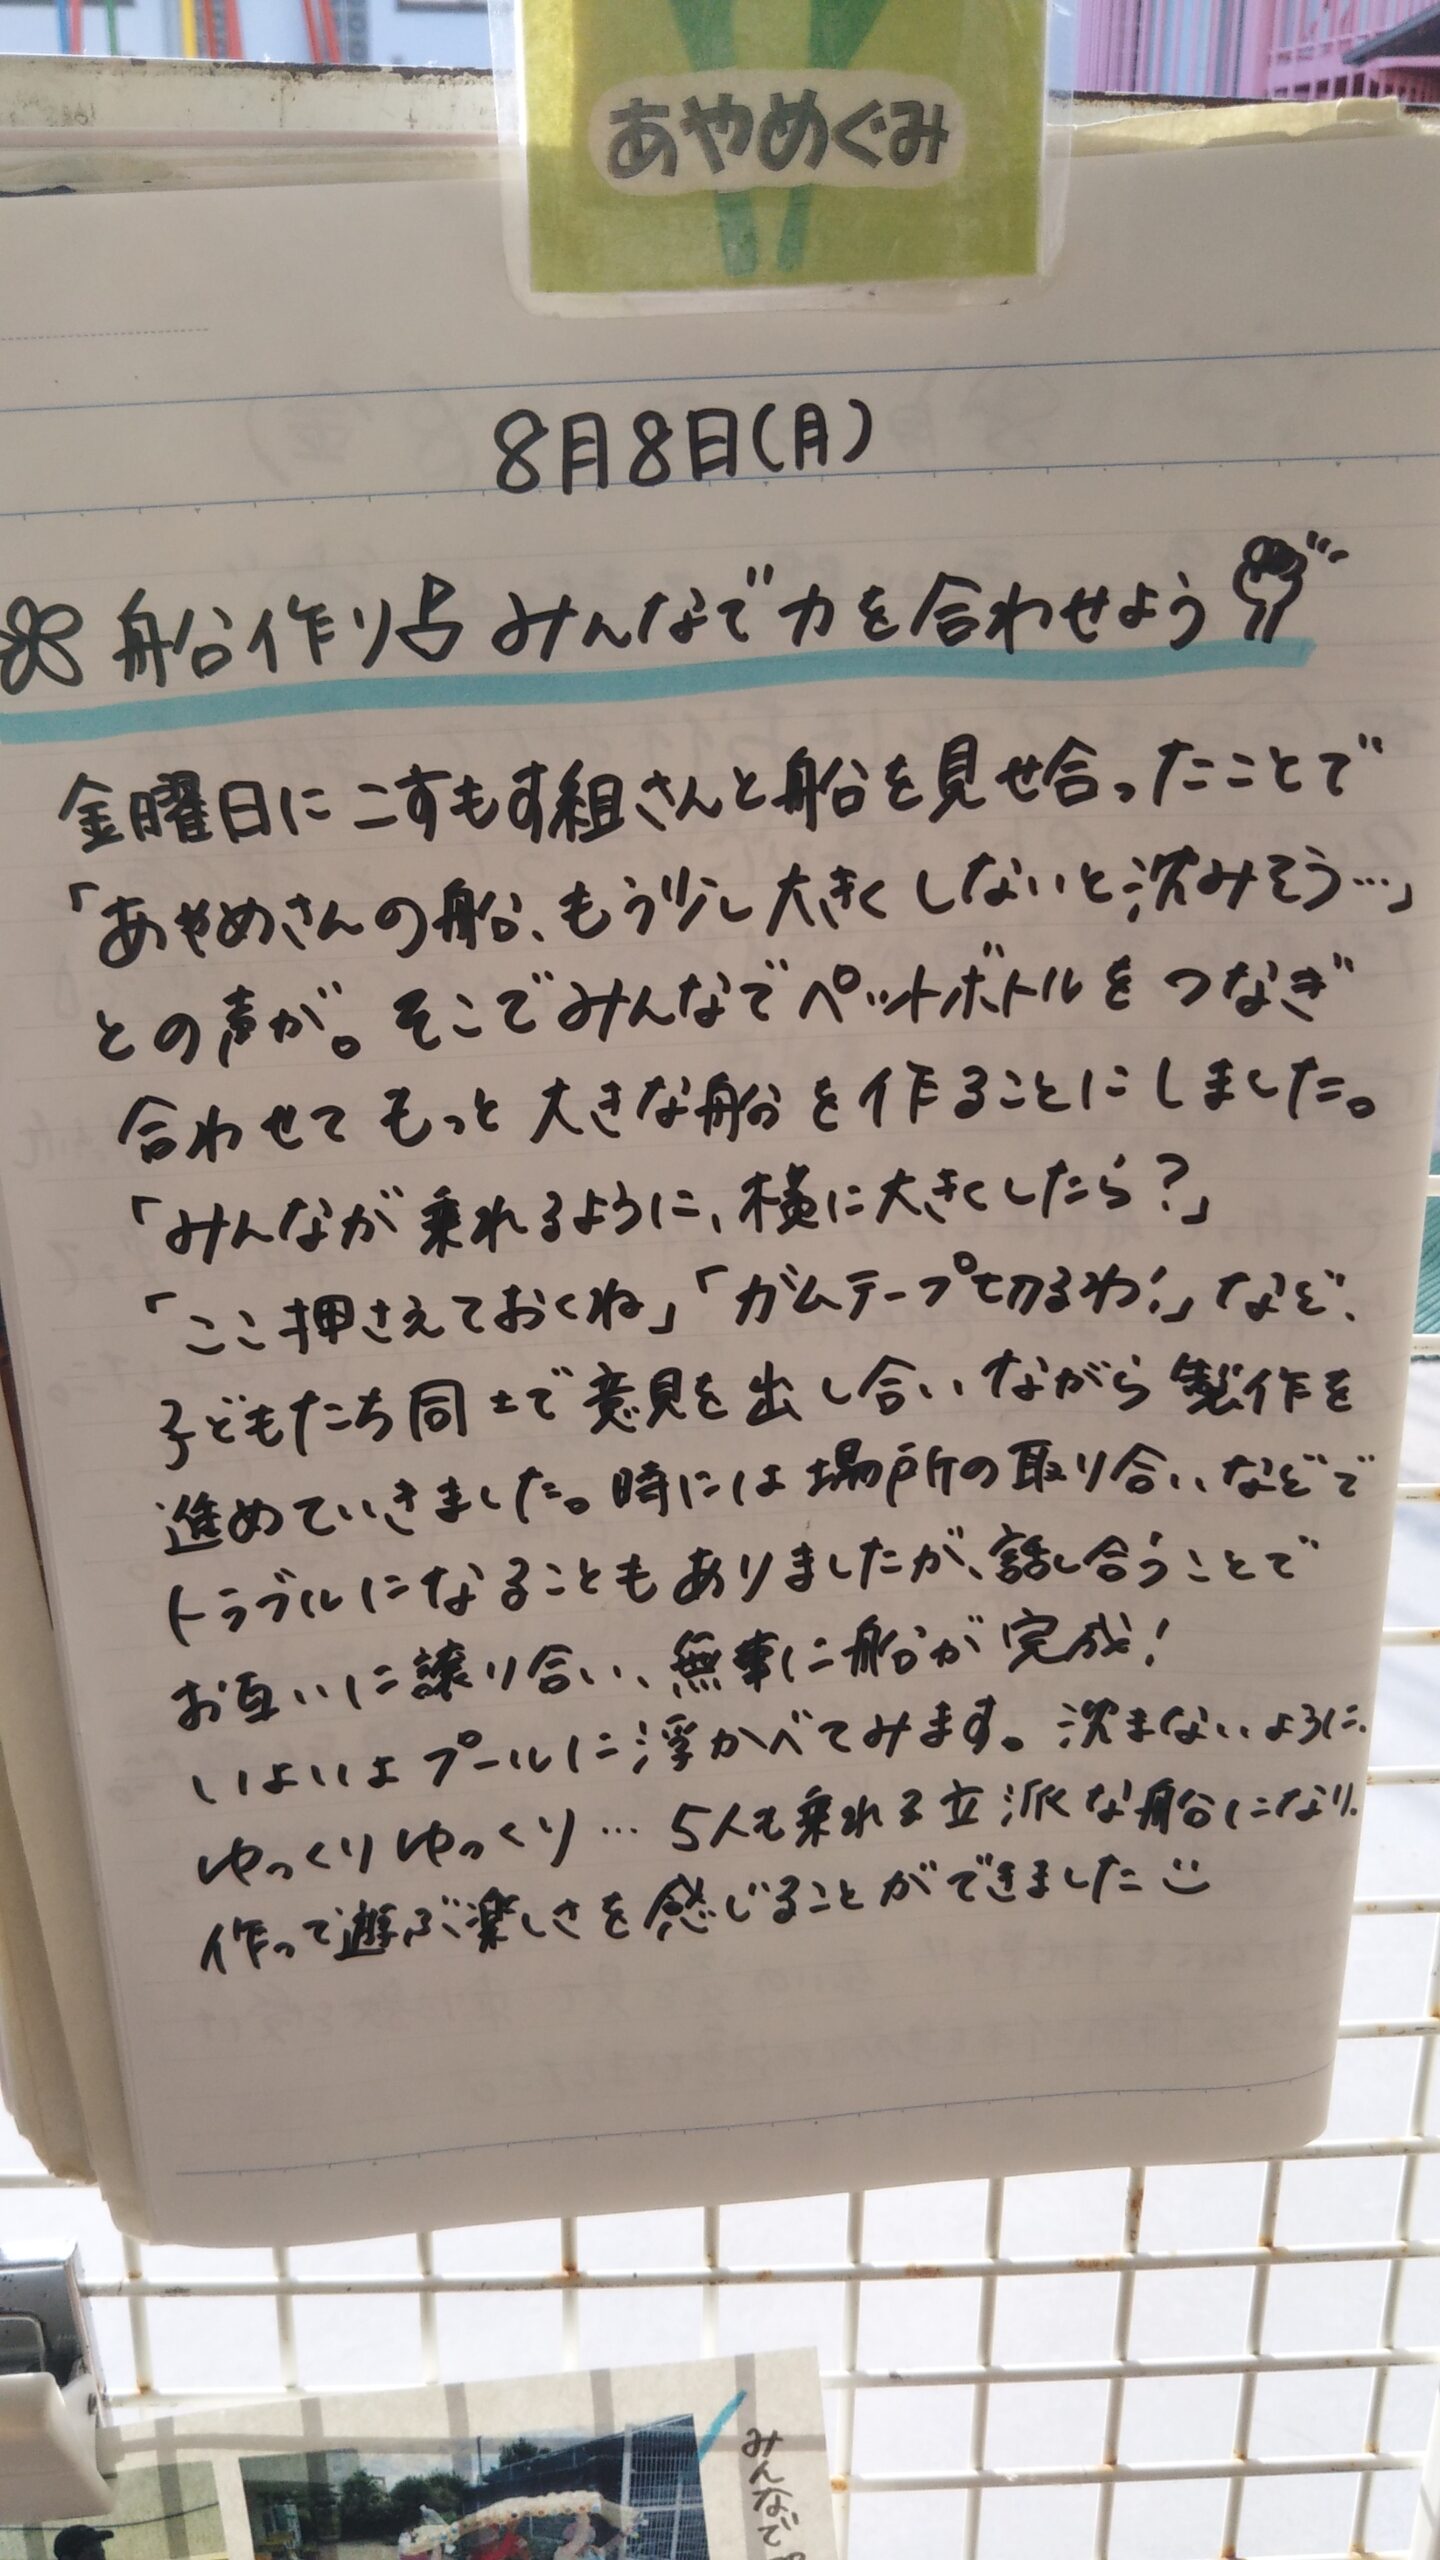 あやめぐみ
8月8日(月)
船作り みんなで力を合わせよう
金曜日にこすもす組さんと船を見せ合ったことで
「あやめさんの船、もう少し大きくしないと沈みそう…」
との声が。そこでみんなでペットボトルをつなぎ
合わせてもっと大きな船を作ることにしました。
「みんなが乗れるように、横に大きくしたら?」
「ここ押さえておくね」「ガムテープ切るわ!」など、
子どもたち同士で意見を出し合いながら製作を
進めていきました。時には場所の取り合いなどで
トラブルになることもありましたが、話し合うことで
お互いに譲り合い、無事に船が完成!
いよいよプールに浮かべてみます。沈まないように、
ゆっくりゆっくり… 5人も乗れる立派な船になり、
作って遊ぶ楽しさを感じることができました
みんなで